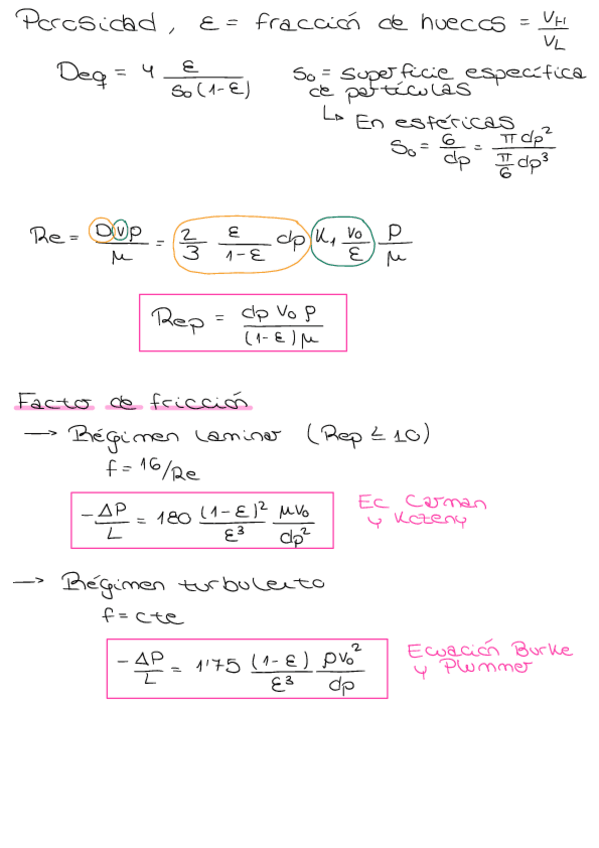 Porosidad, ε = fracción de huecos = V_H/V_L
Deq = 4 ε/(S₀(1-ε))
S₀ = superficie específica
de partículas
↳ En esféricas
S₀ = 6/dp = πdp²/(π/6 dp³)
Re = Dvρ/μ = 2/3 ε/(1-ε) dp K₁ v₀/ε ρ/μ
Rep = dp v₀ ρ/((1-ε)μ)
Factor de fricción
→ Régimen laminar (Rep ≤ 10)
f = 16/Re
-ΔP/L = 180 (1-ε)²/ε³ μv₀/dp²
Ec Carman
y Kozeny
→ Régimen turbulento
f = cte
-ΔP/L = 1'75 (1-ε)/ε³ ρv₀²/dp
Ecuación Burke
y Plummer